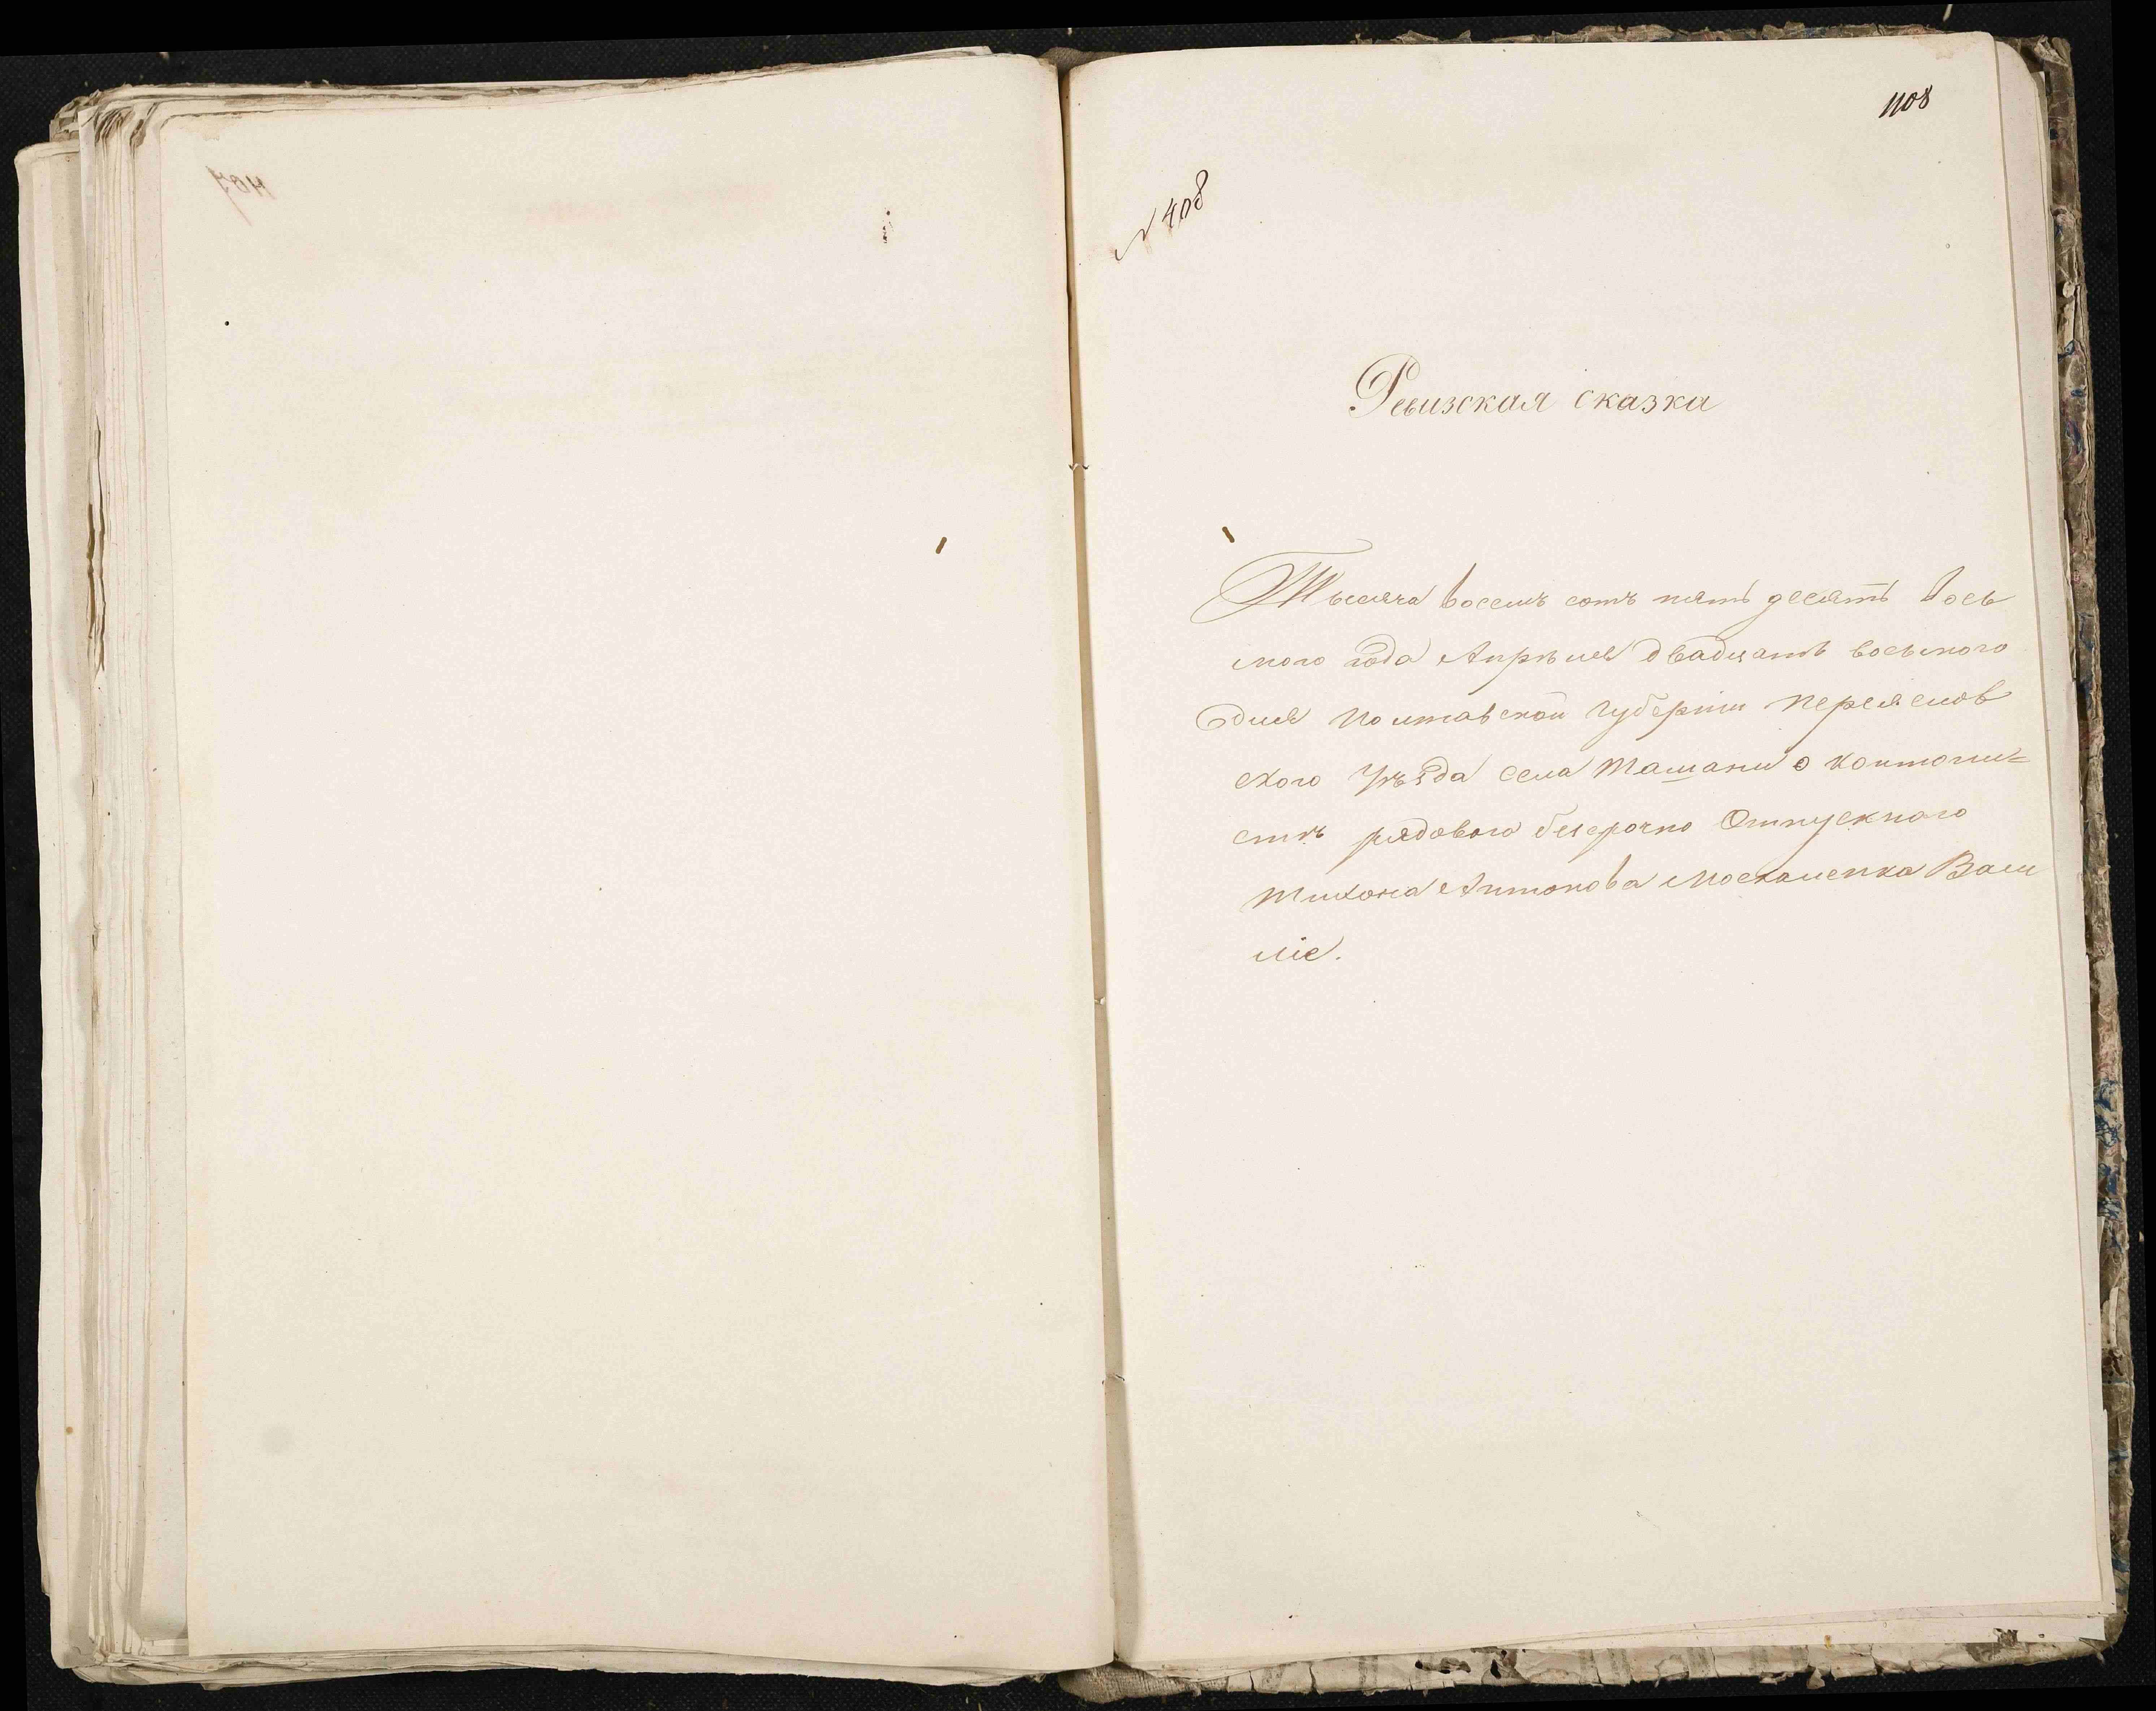 1108
N 408
Ревизская сказка
Тысяча восемъ сотъ пять десятъ вось
мого года Апрѣля двадцать восьмого
дня Полтавской губерніи Переяслов
ского Уѣзда села Ташани о кантони=
стѣ рядового безсрочно Отпускного
Тихона Антонова Москаленка Васи
ліе.